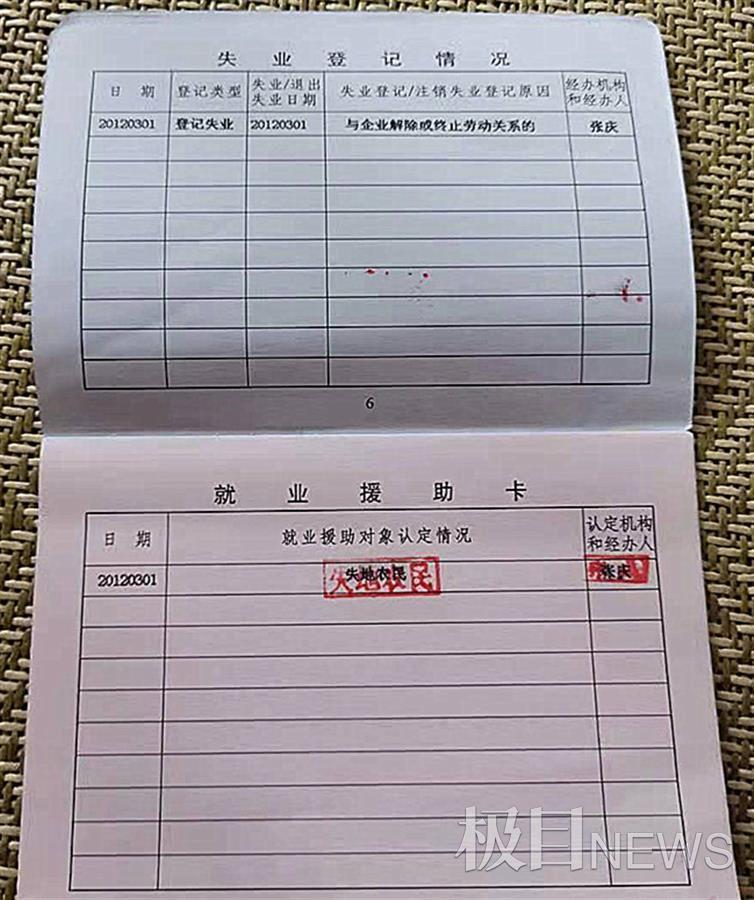 失业登记情况
日期 登记类型 失业/退出失业日期 失业登记/注销失业登记原因 经办机构和经办人
20120301 登记失业 20120301 与企业解除或终止劳动关系的 张庆
6
就业援助卡
日期 就业援助对象认定情况 认定机构和经办人
20120301 失地农民 张庆
失地农民
极目NEWS